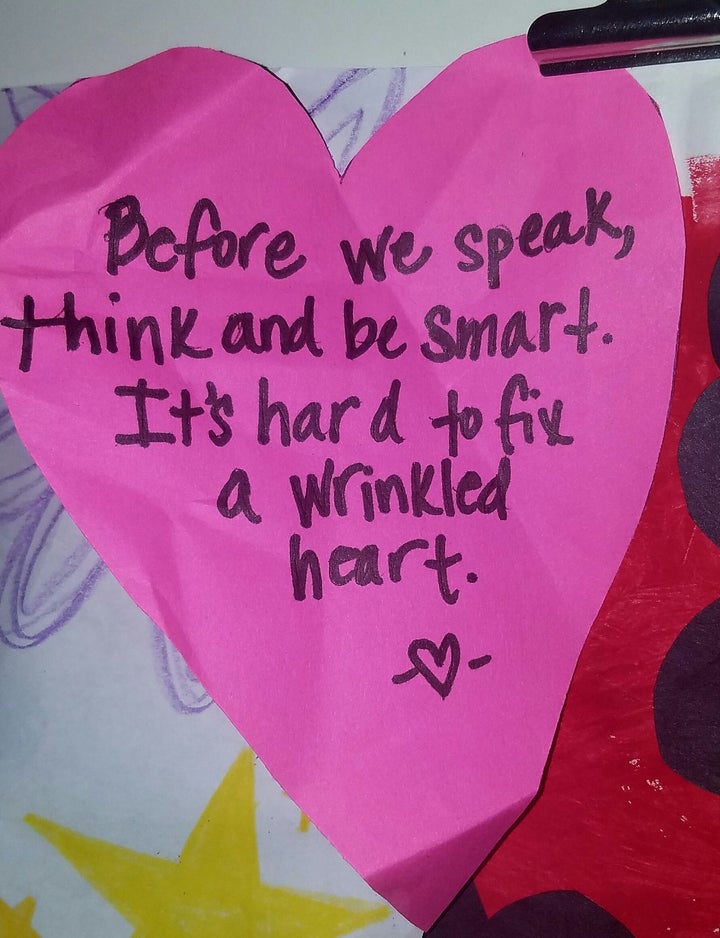 Before we speak,
think and be smart.
It's hard to fix
a wrinkled
heart.